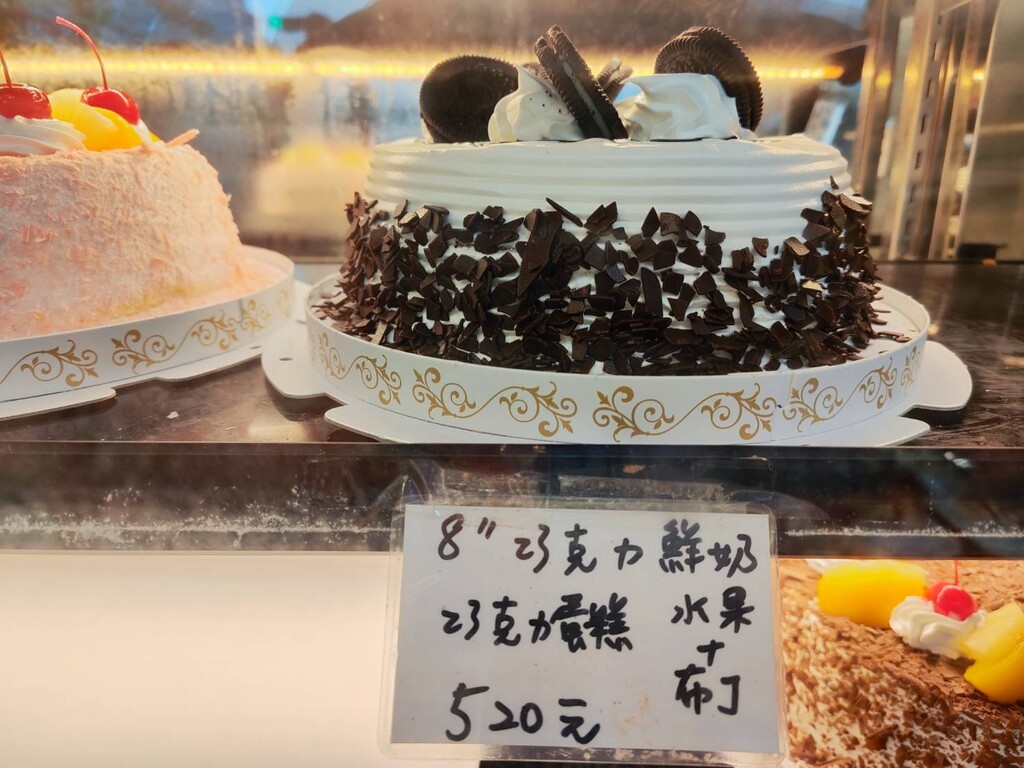 8" 巧克力鮮奶
巧克力蛋糕
520元
水果
+
布丁